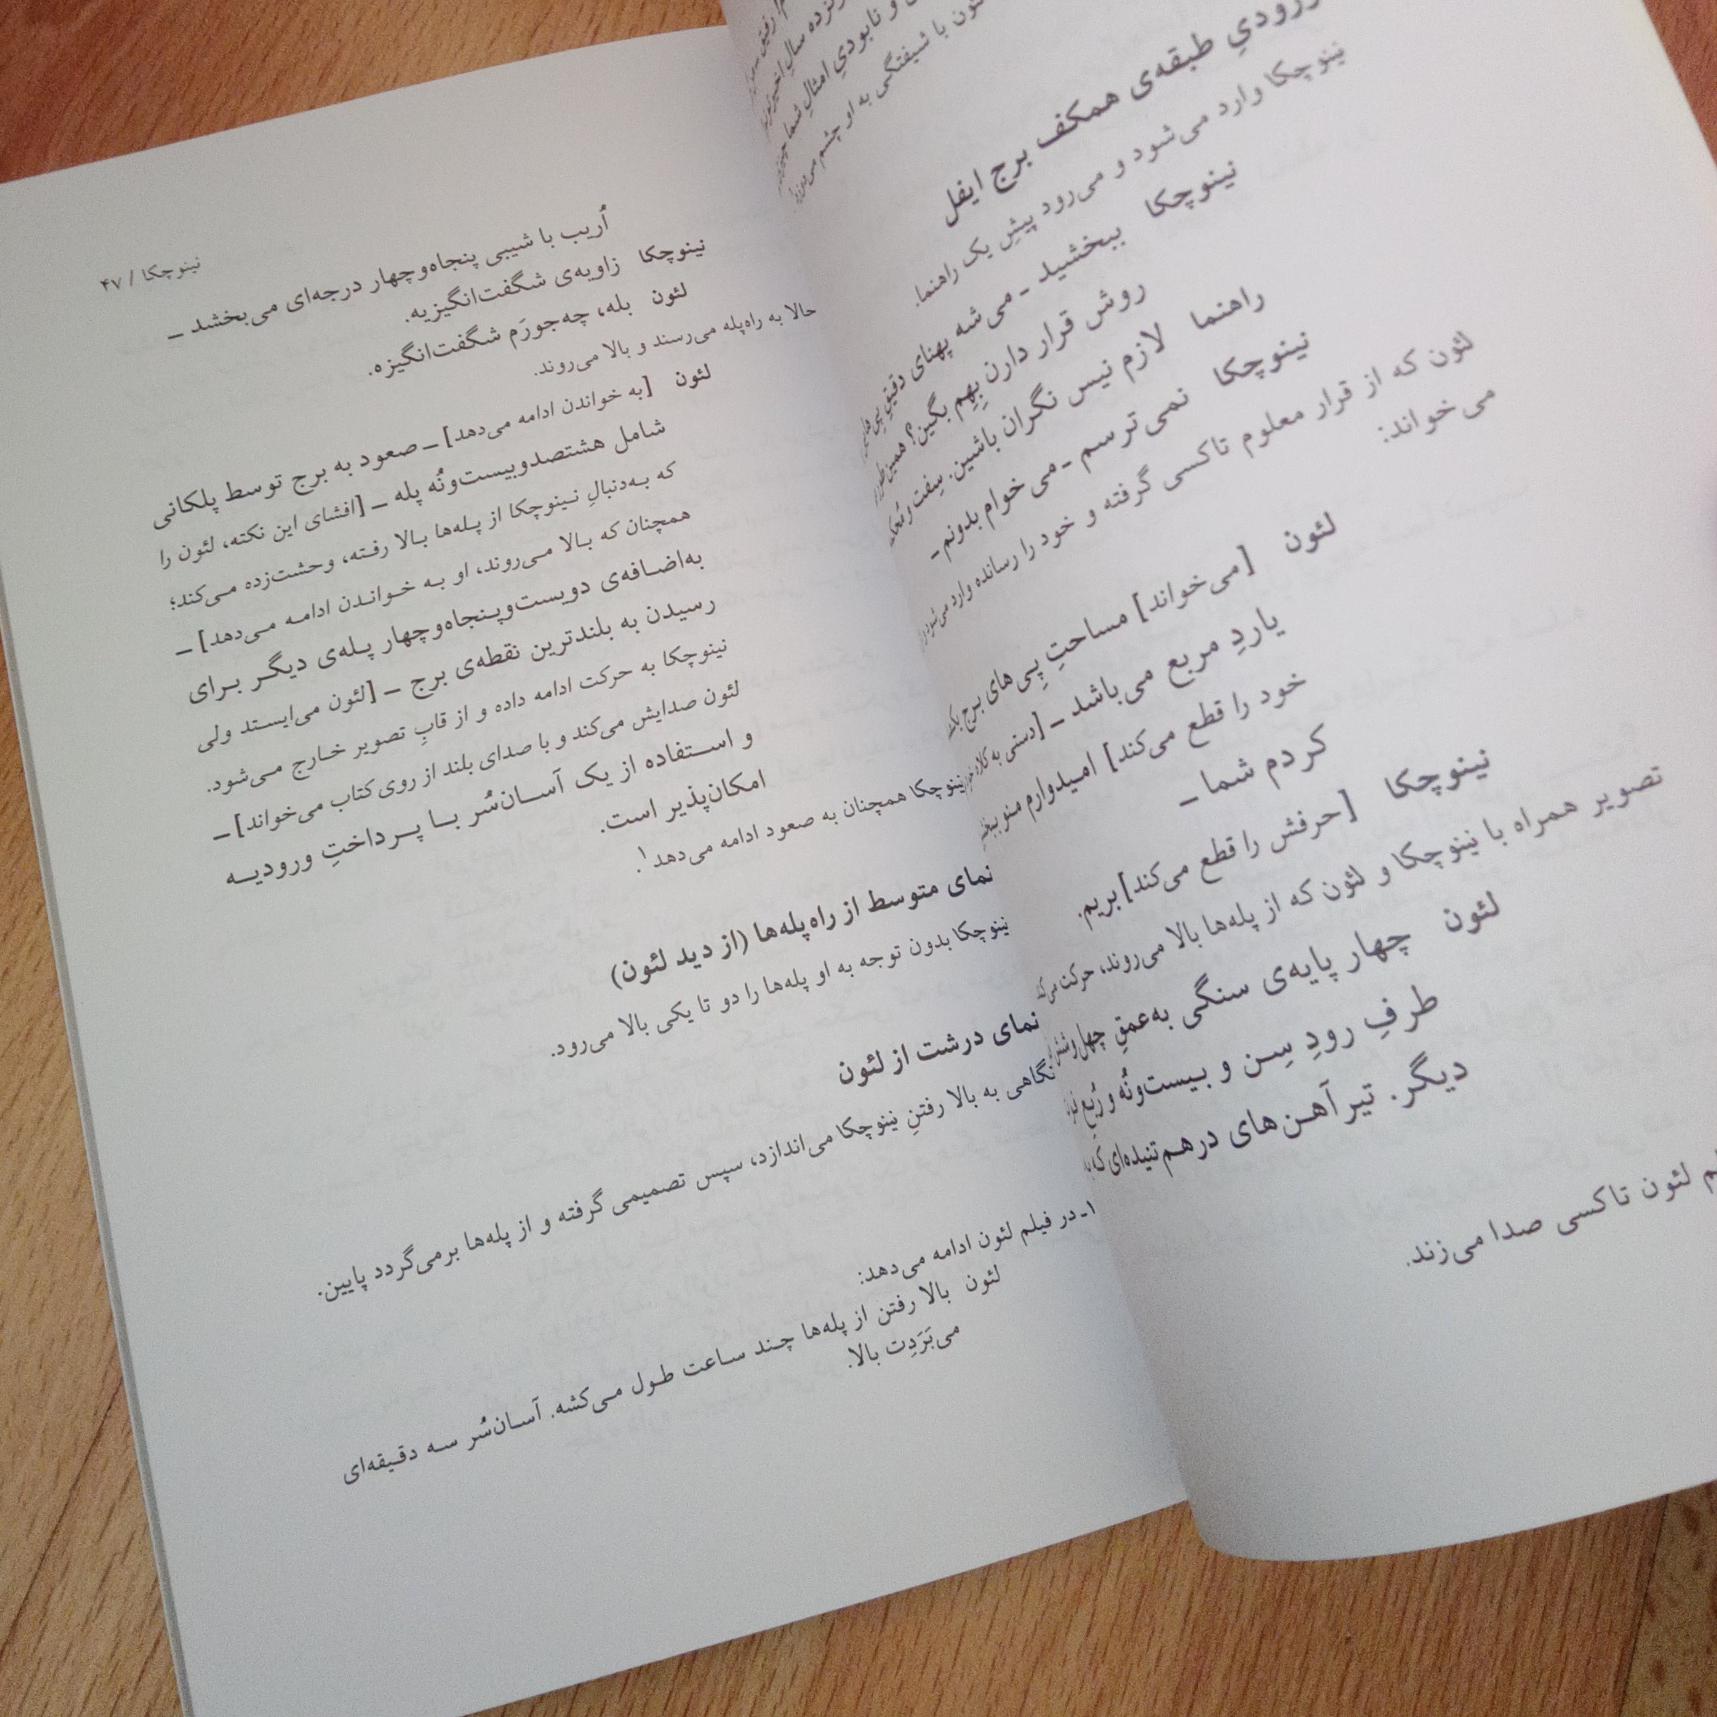 و نابودیِ امثالِ شما
با شیفتگی به او چشم
ورودیِ طبقه‌ی همکف برج ایفل
نینوچکا وارد می‌شود و می‌رود پیشِ یک راهنما.
نینوچکا ببخشید ـ می‌شه پهنای دقیقِ پِی
روش قرار دارن بِهِم بگین؟
راهنما لازم نیس نگران باشین. سِفت و
نینوچکا نمی‌ترسم ـ می‌خوام بدونم ـ
لئون که از قرار معلوم تاکسی گرفته و خود را رسانده وارد می‌شود
می‌خواند:
لئون [می‌خواند] مساحتِ پِی‌های برج
یاردِ مربع می‌باشد ـ [دستی به کلاه
خود را قطع می‌کند] امیدوارم منو
کردم شما ـ
نینوچکا [حرفش را قطع می‌کند] بریم.
تصویر همراه با نینوچکا و لئون که از پله‌ها بالا می‌روند، حرکت
لئون چهار پایه‌ی سنگی به‌عمقِ چهل‌وشش
طرفِ رودِ سِن و بیست‌ونُه و رُبع
دیگر. تیرآهن‌های درهم‌تنیده‌ای که
لئون تاکسی صدا می‌زند.
نینوچکا / ۴۷
اُریب با شیبی پنجاه‌وچهار درجه‌ای می‌بخشد ـ
نینوچکا زاویه‌ی شگفت‌انگیزیه.
لئون بله، چه‌جورَم شگفت‌انگیزه.
حالا به راه‌پله می‌رسند و بالا می‌روند.
لئون [به خواندن ادامه می‌دهد] ـ صعود به برج توسط پلکانی
شامل هشتصدوبیست‌ونُه پله ـ [افشای این نکته، لئون را
که به‌دنبالِ نینوچکا از پله‌ها بالا رفته، وحشت‌زده می‌کند؛
همچنان که بالا می‌روند، او به خواندن ادامه می‌دهد] ـ
به‌اضافه‌ی دویست‌وپنجاه‌وچهار پله‌ی دیگر برای
رسیدن به بلندترین نقطه‌ی برج ـ [لئون می‌ایستد ولی
نینوچکا به حرکت ادامه داده و از قابِ تصویر خارج می‌شود.
لئون صدایش می‌کند و با صدای بلند از روی کتاب می‌خواند] ـ
و استفاده از یک آسان‌سُر با پرداختِ ورودیه
امکان‌پذیر است.
نینوچکا همچنان به صعود ادامه می‌دهد۱.
نمای متوسط از راه‌پله‌ها (از دید لئون)
نینوچکا بدون توجه به او پله‌ها را دو تا یکی بالا می‌رود.
نمای درشت از لئون
نگاهی به بالا رفتنِ نینوچکا می‌اندازد، سپس تصمیمی گرفته و از پله‌ها برمی‌گردد پایین.
۱ـ در فیلم لئون ادامه می‌دهد:
لئون بالا رفتن از پله‌ها چند ساعت طول می‌کشه. آسان‌سُر سه دقیقه‌ای
می‌بَرَدِت بالا.